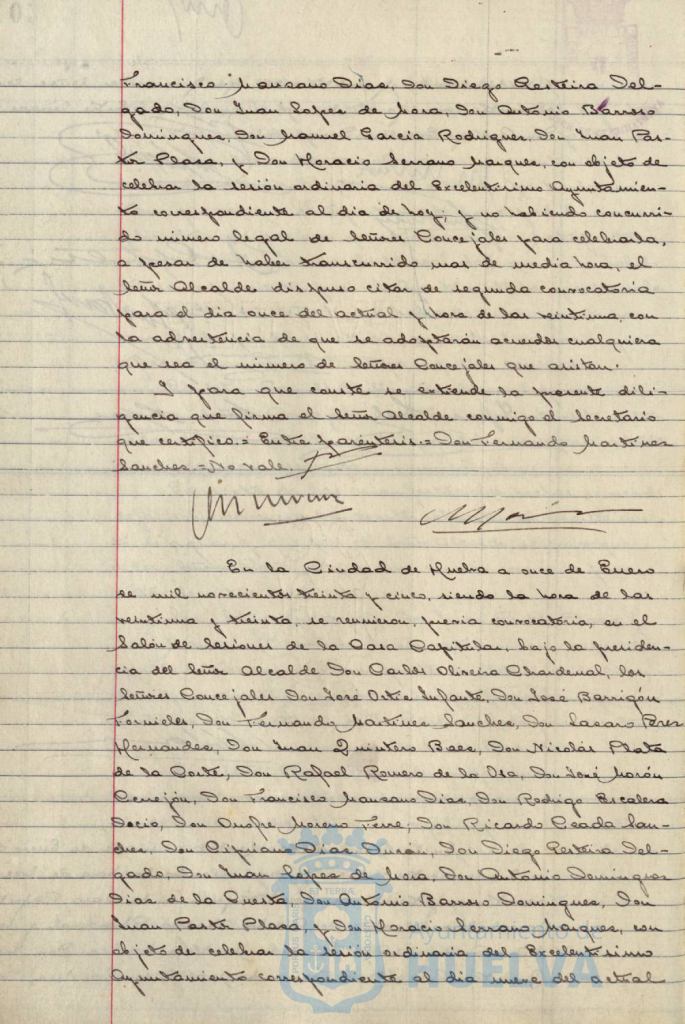 Francisco Manzano Diaz, Don Diego Resteira Del-
gado, Don Juan Lopez de Mora, Don Antonio Barroso
Dominguez, Don Manuel Garcia Rodriguez, Don Juan Pas-
tor Plaza, y Don Horacio Serrano Marquez, con objeto de
celebrar la sesión ordinaria del Excelentisimo Ayuntamien-
to correspondiente al dia de hoy; y no habiendo concurri-
do número legal de Señores Concejales para celebrarla,
a pesar de haber transcurrido mas de media hora, el
Señor Alcalde dispuso citar de segunda convocatoria
para el dia once del actual y hora de las veintiuna, con
la advertencia de que se adoptarán acuerdos cualquiera
que sea el número de Señores Concejales que asistan.
Y para que conste se extiende la presente dili-
gencia que firma el Señor Alcalde conmigo el Secretario
que certifico.= Entre parentesis.= Don Fernando Martinez
Sanchez.= No vale.
En la Ciudad de Huelva a once de Enero
de mil novecientos treinta y cinco, siendo la hora de las
veintiuna y treinta, se reunieron, previa convocatoria, en el
Salón de Sesiones de la Casa Capitular, bajo la presiden-
cia del Señor Alcalde Don Carlos Oliveira Chardenal, los
Señores Concejales Don José Ortiz Infante, Don José Barrigón
Fornieles, Don Fernando Martinez Sanchez, Don Lazaro Perez
Hernandez, Don Juan Quintero Baez, Don Nicolás Plata
de la Corte, Don Rafael Romero de la Osa, Don José Morón
Cerrejón, Don Francisco Manzano Diaz, Don Rodrigo Escalera
Docio, Don Onofre Moreno Ferre, Don Ricardo Ceada San-
chez, Don Cipriano Diaz Durán, Don Diego Resteira Del-
gado, Don Juan Lopez de Mora, Don Antonio Dominguez
Diaz de la Cuesta, Don Antonio Barroso Dominguez, Don
Juan Pastor Plaza, y Don Horacio Serrano Marquez, con
objeto de celebrar la sesión ordinaria del Excelentisimo
Ayuntamiento correspondiente al dia nueve del actual
HUELVA